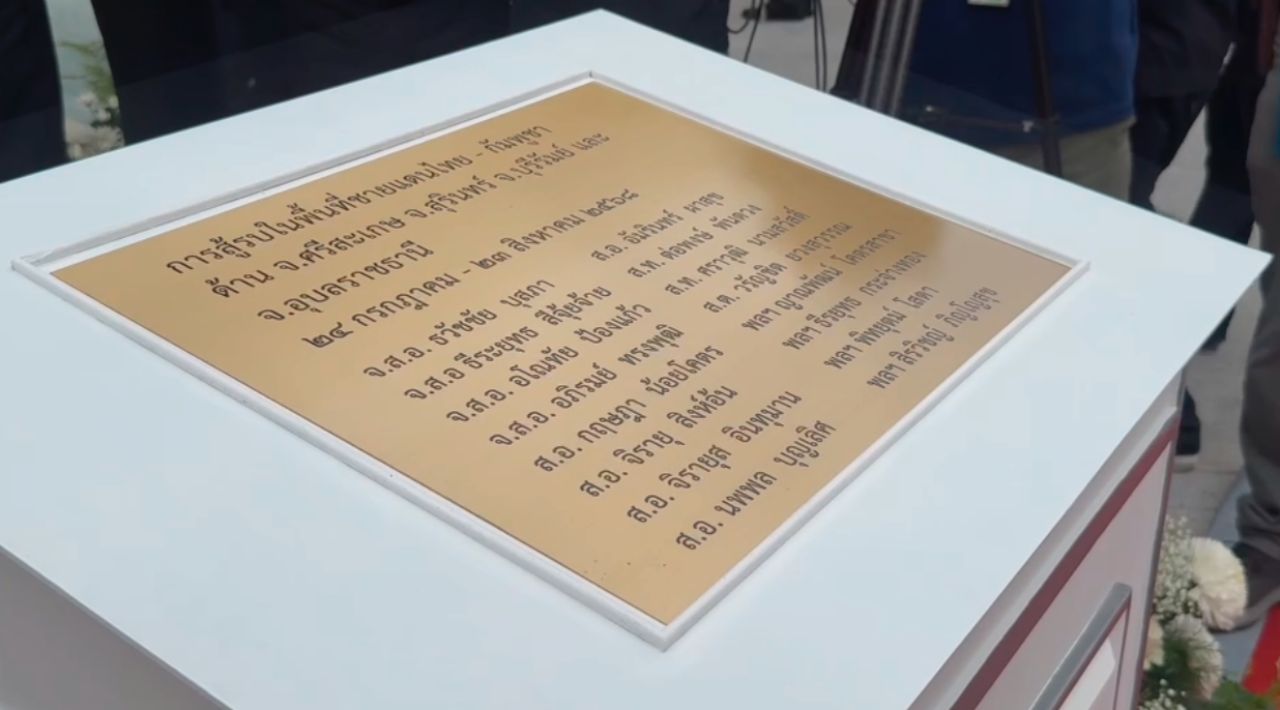 การสู้รบในพื้นที่ชายแดนไทย - กัมพูชา
ด้าน จ.ศรีสะเกษ จ.สุรินทร์ จ.บุรีรัมย์ และ
จ.อุบลราชธานี
๒๔ กรกฎาคม - ๒๓ สิงหาคม ๒๕๖๘
จ.ส.อ. ธวัชชัย บุสภา
จ.ส.อ ธีระยุทธ สีจุ้ยจ้าย
จ.ส.อ. อโณทัย ป้องแก้ว
จ.ส.อ. อภิรมย์ ทรงพุฒิ
ส.อ. กฤษฎา น้อยโคตร
ส.อ. จิรายุ สิงห์อ้น
ส.อ. จิรายุส อินทุมาน
ส.อ. นพพล บุญเลิศ
ส.อ. อัมรินทร์ ผาสุข
ส.ท. ต่อพงษ์ พันดวง
ส.ท. ศราวุฒิ นามสวัสดิ์
ส.ต. วรัญชิต ยวงสุวรรณ
พลฯ ญาณพัฒน์ โคตรสาขา
พลฯ ธีรยุทธ กระจ่างทอง
พลฯ พิทยุตม์ โสดา
พลฯ สิรวิชญ์ ภิญโญสุข